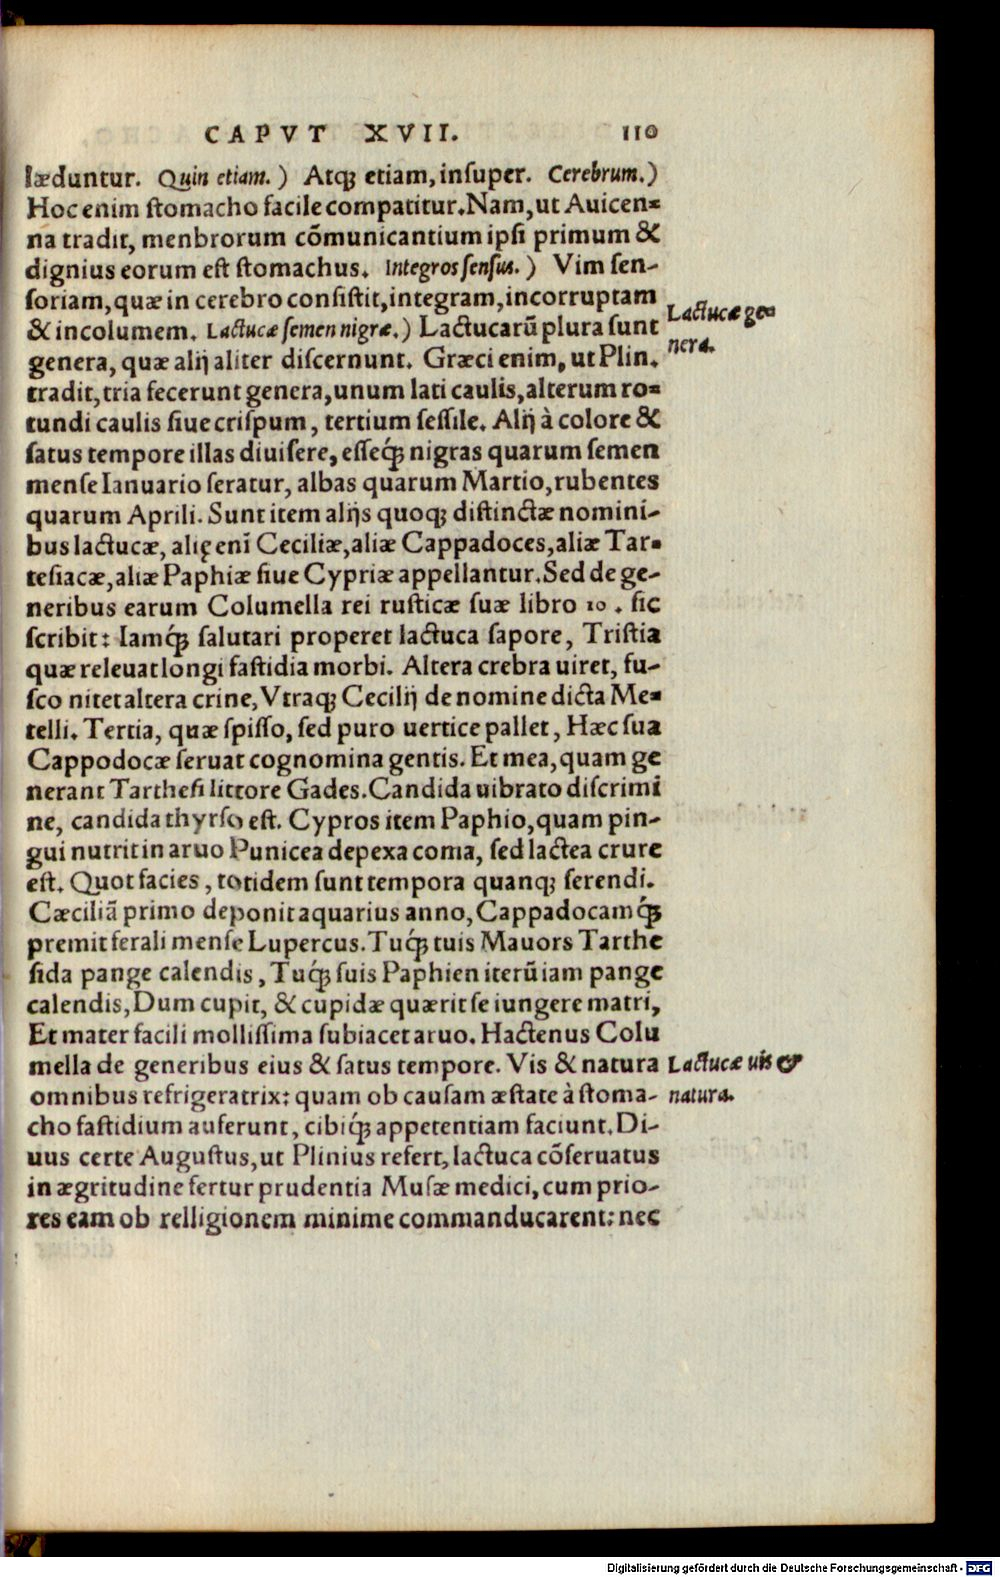 CAPVT XVII. 110
læduntur. Quin etiam.) Atq; etiam, insuper. Cerebrum.)
Hoc enim stomacho facile compatitur. Nam, ut Auicen=
na tradit, menbrorum cõmunicantium ipsi primum &
dignius eorum est stomachus. Integros sensus.) Vim sen-
soriam, quæ in cerebro consistit, integram, incorruptam
& incolumem. Lactucæ semen nigræ.) Lactucarũ plura sunt
Lactucæ ge=
nera.
genera, quæ alij aliter discernunt. Græci enim, ut Plin.
tradit, tria fecerunt genera, unum lati caulis, alterum ro=
tundi caulis siue crispum, tertium sessile. Alij à colore &
satus tempore illas diuisere, esseq́; nigras quarum semen
mense Ianuario seratur, albas quarum Martio, rubentes
quarum Aprili. Sunt item alijs quoq; distinctæ nomini-
bus lactucæ, alię enĩ Ceciliæ, aliæ Cappadoces, aliæ Tar=
tesiacæ, aliæ Paphiæ siue Cypriæ appellantur. Sed de ge-
neribus earum Columella rei rusticæ suæ libro 10. sic
scribit: Iamq́; salutari properet lactuca sapore, Tristia
quæ releuat longi fastidia morbi. Altera crebra uiret, fu-
sco nitet altera crine, Vtraq; Cecilij de nomine dicta Me=
telli. Tertia, quæ spisso, sed puro uertice pallet, Hæc sua
Cappodocæ seruat cognomina gentis. Et mea, quam ge
nerant Tarthesi littore Gades. Candida uibrato discrimi
ne, candida thyrso est. Cypros item Paphio, quam pin-
gui nutrit in aruo Punicea depexa coma, sed lactea crure
est. Quot facies, totidem sunt tempora quanq; serendi.
Cæciliã primo deponit aquarius anno, Cappadocamq́;
premit ferali mense Lupercus. Tuq́; tuis Mauors Tarthe
sida pange calendis, Tuq́; suis Paphien iterũ iam pange
calendis, Dum cupit, & cupidæ quærit se iungere matri,
Et mater facili mollissima subiacet aruo. Hactenus Colu
mella de generibus eius & satus tempore. Vis & natura
Lactucæ uis &
natura.
omnibus refrigeratrix: quam ob causam æstate à stoma-
cho fastidium auferunt, cibiq́; appetentiam faciunt. Di-
uus certe Augustus, ut Plinius refert, lactuca cõseruatus
in ægritudine fertur prudentia Musæ medici, cum prio-
res eam ob relligionem minime commanducarent: nec
Digitalisierung gefördert durch die Deutsche Forschungsgemeinschaft - DFG